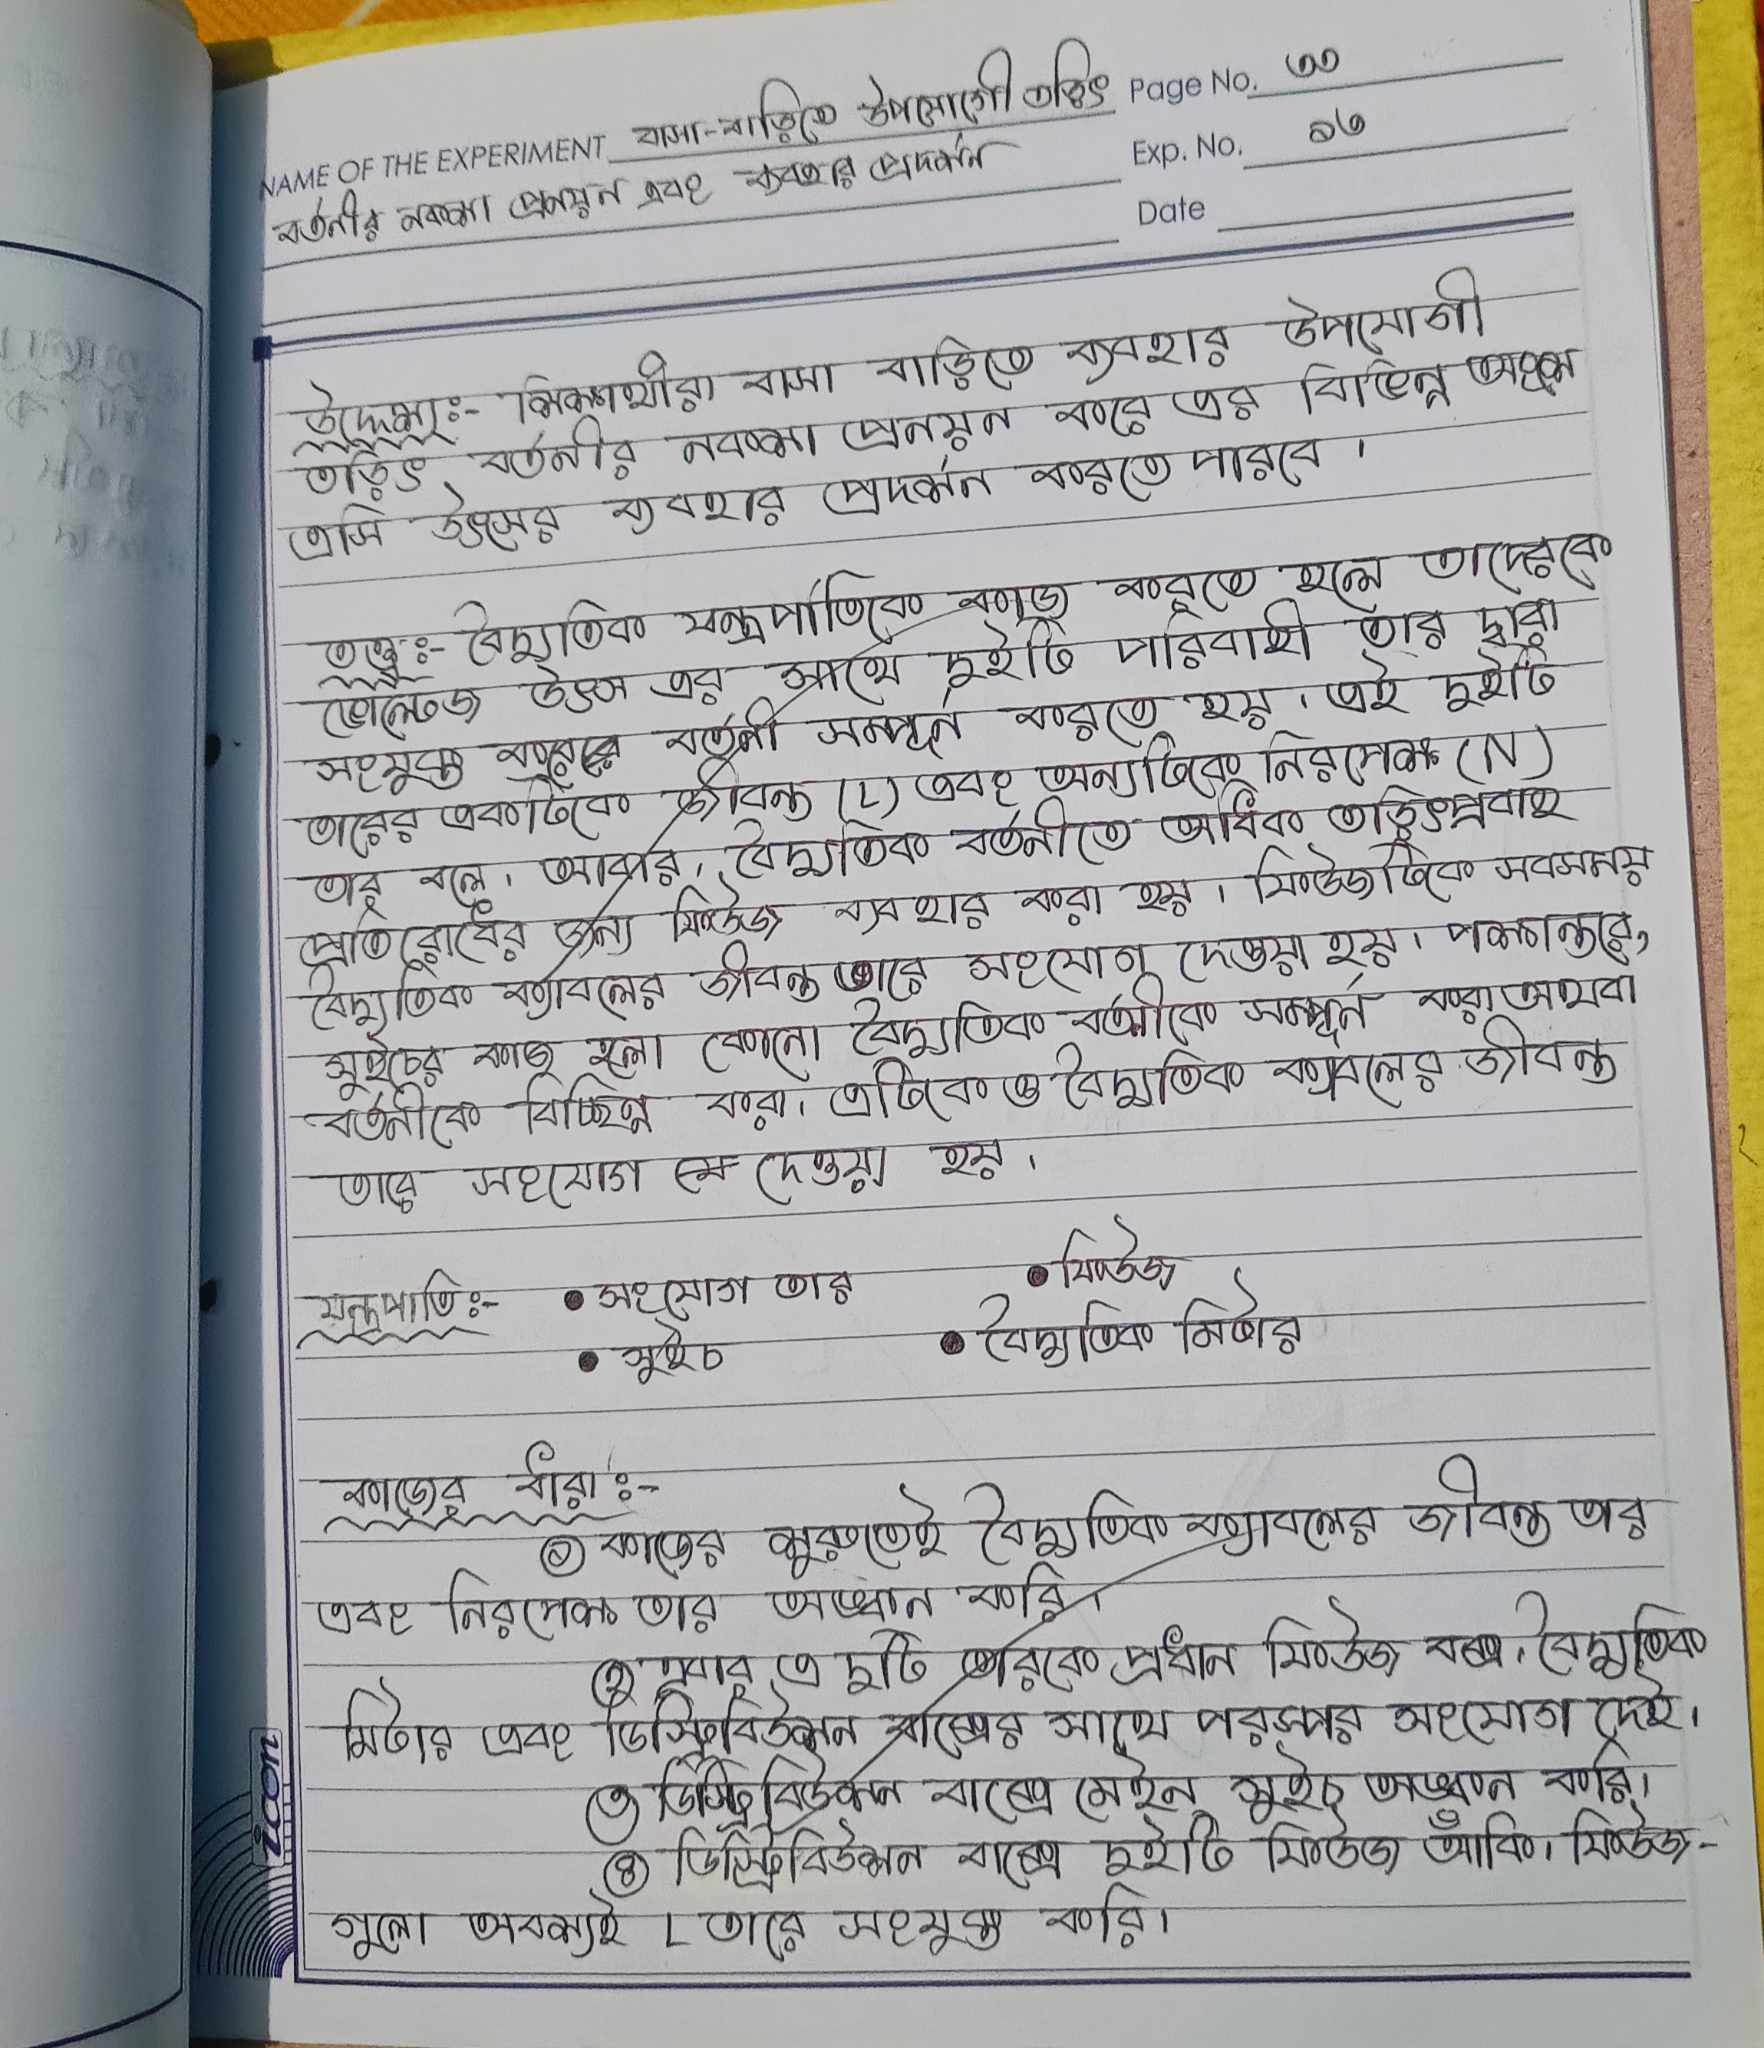 NAME OF THE EXPERIMENT বাসা-বাড়িতে উপযোগী তড়িৎ
বর্তনীর নকশা প্রনয়ন এবং ব্যবহার প্রদর্শন
Page No. ৩৩
Exp. No. ১৬
Date
উদ্দেশ্য:- শিক্ষার্থীরা বাসা বাড়িতে ব্যবহার উপযোগী
তড়িৎ বর্তনীর নকশা প্রনয়ন করে এর বিভিন্ন অংশে
এসি উৎসের ব্যবহার প্রদর্শন করতে পারবে।
তত্ত্ব:- বৈদ্যুতিক যন্ত্রপাতিকে কাজ করতে হলে তাদেরকে
ভোল্টেজ উৎস এর সাথে দুইটি পরিবাহী তার দ্বারা
সংযুক্ত করে বর্তনী সম্পূর্ন করতে হয়। এই দুইটি
তারের একটিকে জীবন্ত (L) এবং অন্যটিকে নিরপেক্ষ (N)
তার বলে। আবার, বৈদ্যুতিক বর্তনীতে অধিক তড়িৎপ্রবাহ
প্রতিরোধের জন্য ফিউজ ব্যবহার করা হয়। ফিউজটিকে সবসময়
বৈদ্যুতিক ক্যাবলের জীবন্ত তারে সংযোগ দেওয়া হয়। পক্ষান্তরে,
সুইচের কাজ হলো কোনো বৈদ্যুতিক বর্তনীকে সম্পূর্ন করা অথবা
বর্তনীকে বিচ্ছিন্ন করা। এটিকেও বৈদ্যুতিক ক্যাবলের জীবন্ত
তারে সংযোগ দেওয়া হয়।
যন্ত্রপাতি:- • সংযোগ তার • ফিউজ
• সুইচ • বৈদ্যুতিক মিটার
কাজের ধারা:-
১ কাজের শুরুতেই বৈদ্যুতিক ক্যাবলের জীবন্ত তার
এবং নিরপেক্ষ তার অঙ্কন করি।
২ এবার এ দুটি তারকে প্রধান ফিউজ বক্স, বৈদ্যুতিক
মিটার এবং ডিস্ট্রিবিউশন বাক্সের সাথে পরস্পর সংযোগ দেই।
৩ ডিস্ট্রিবিউশন বাক্সে মেইন সুইচ অঙ্কন করি।
৪ ডিস্ট্রিবিউশন বাক্সে দুইটি ফিউজ আঁকি। ফিউজ-
গুলো অবশ্যই L তারে সংযুক্ত করি।
icon